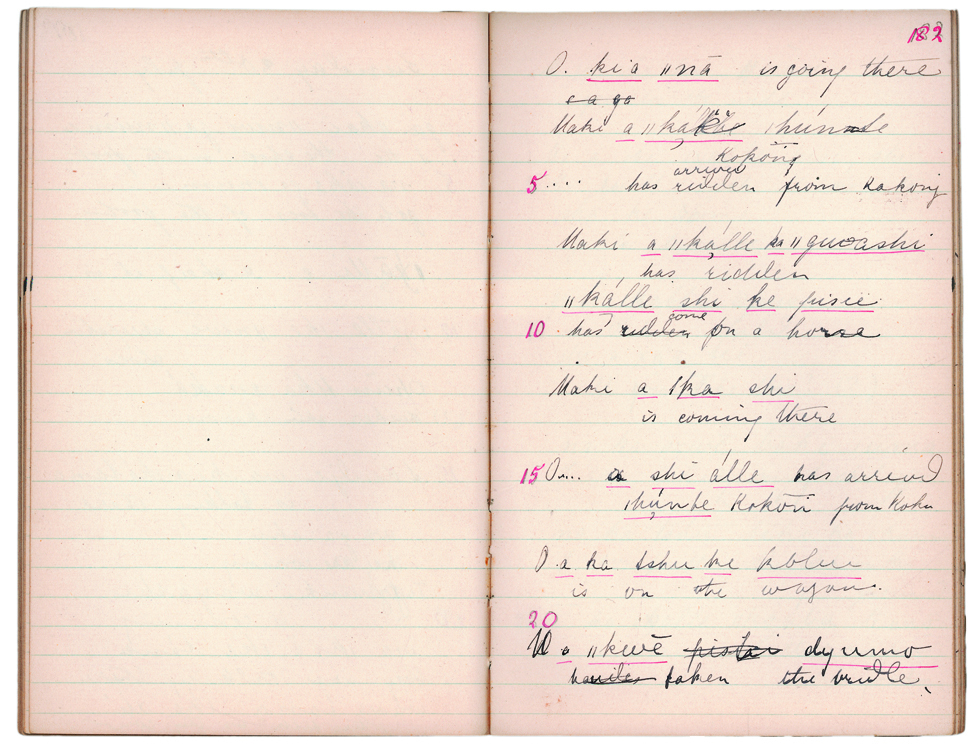 182
O. kia ǁnā is going there
Maki a ǁká
Kokong
arrived
5 .... has ridden from Kakong
Maki a ǁkálle ka ǁgwashi
has ridden
ǁkálle shi ke
come
10 has ridden on a horse
Maki a ǀka shi
is coming there
15 O.... a shi álle has arrived
Kokon from Koku
O a ka tshu ke kolui
is on the wagon.
20
a ǁkwē dyumo
taken the bridle